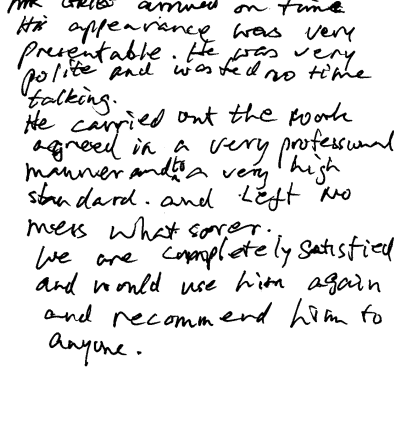 arrived on time
His appearance was very
presentable. He was very
polite and wasted no time
talking.
He carried out the work
agreed in a very professional
manner and to a very high
standard. and left no
mess what sorer.
We are completely satisfied
and would use him again
and recommend him to
anyone.